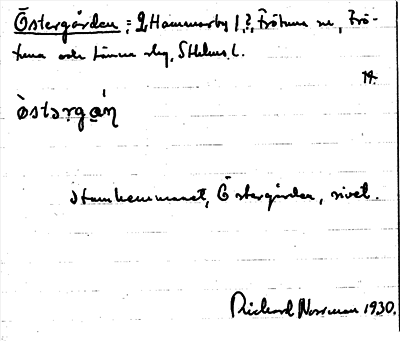 Östergården : 2, Hammarby 1, ?, Frötuna sn, Frö-
tuna och Länna skg, Sthlms l.
östərgán
Stamhemmanet, Östergården, rivet.
Richard Norrman 1930.